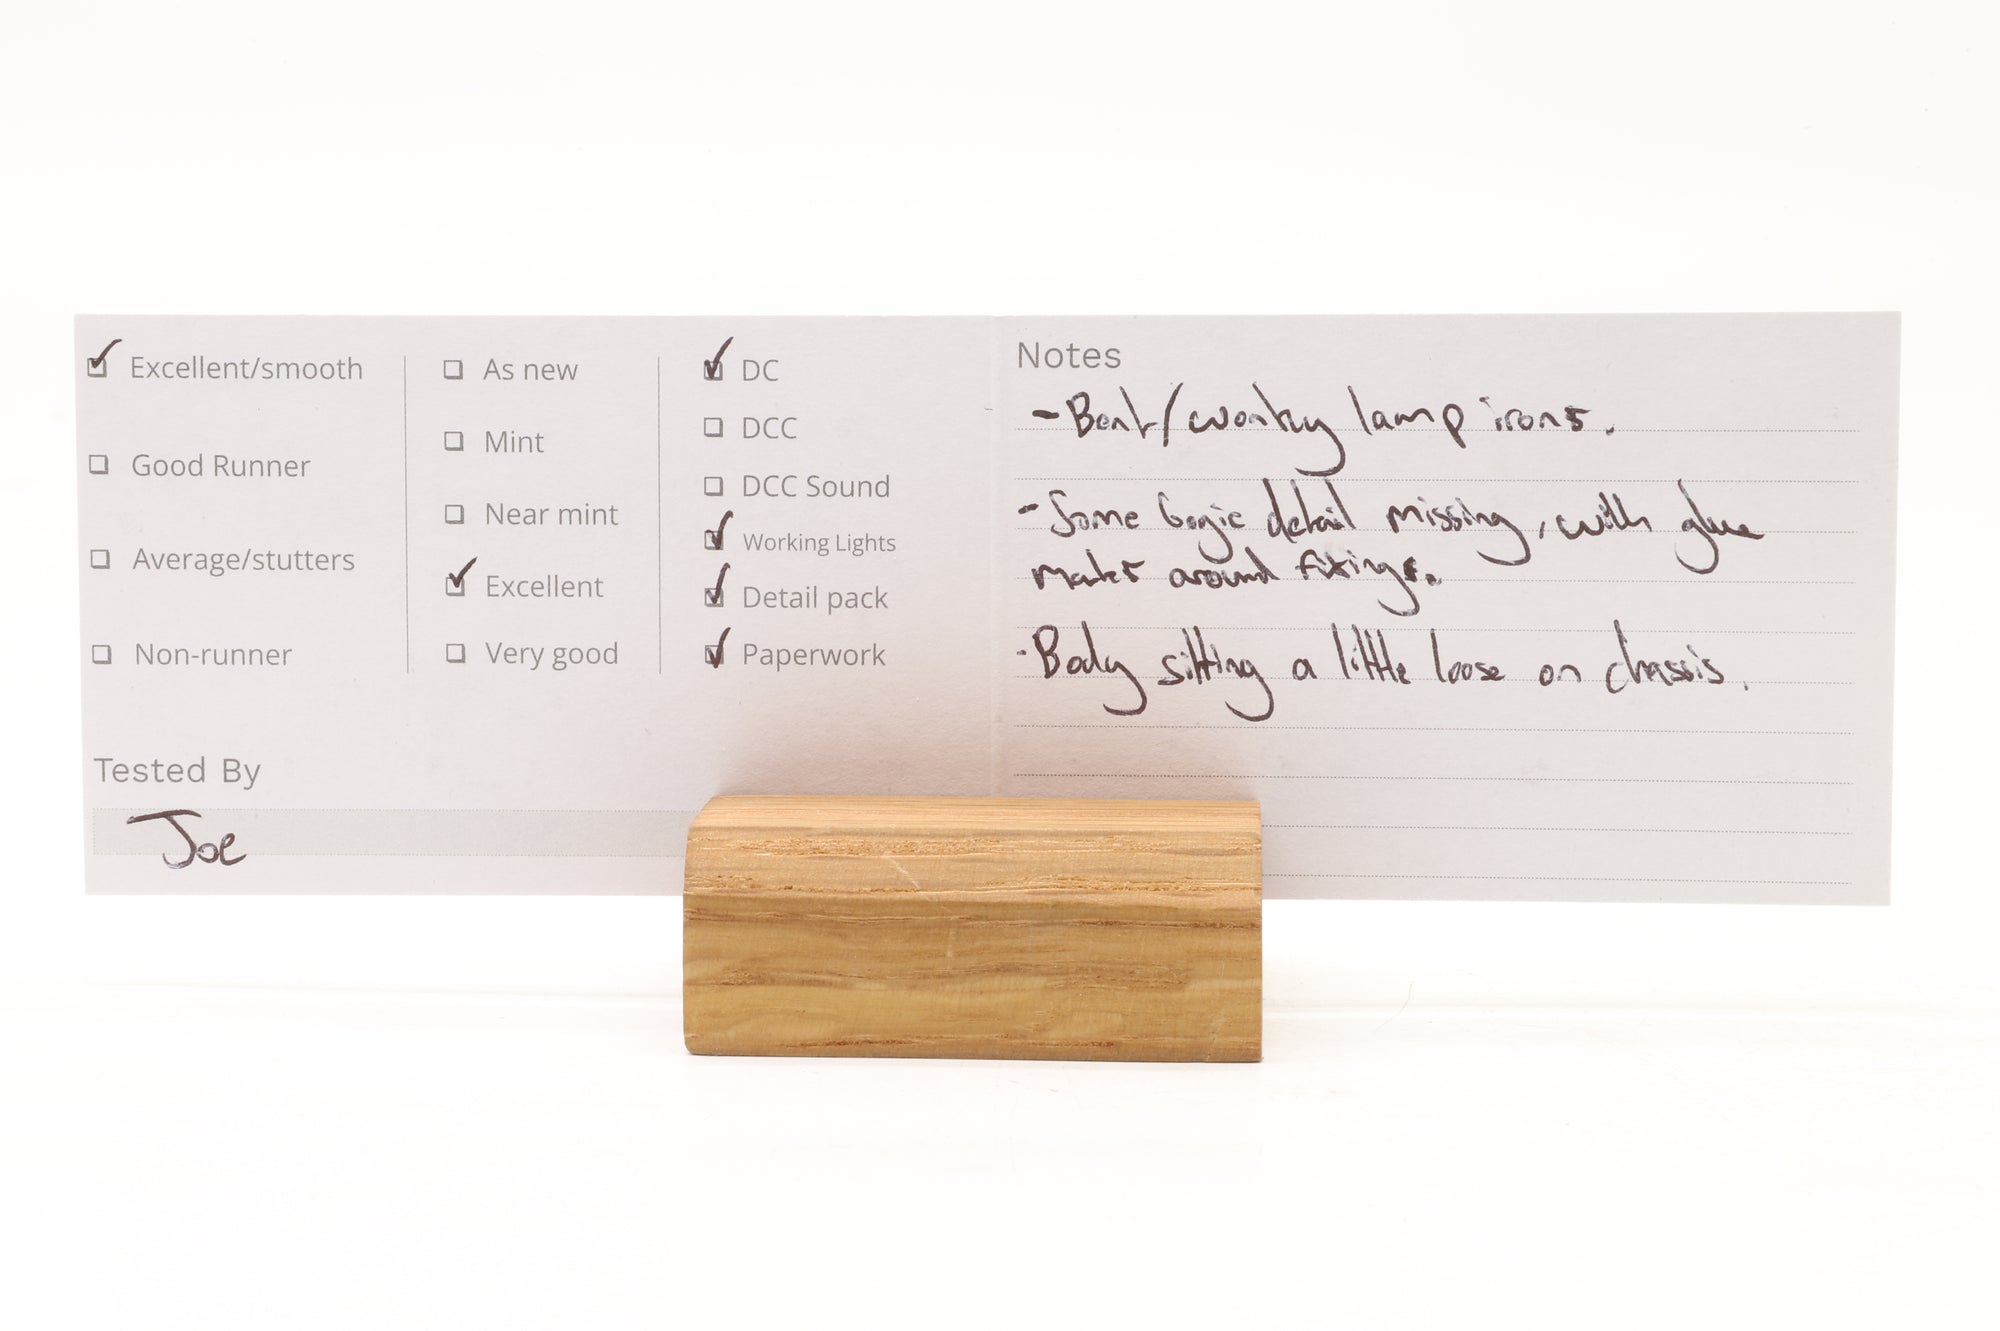 Excellent/smooth
Good Runner
Average/stutters
Non-runner
As new
Mint
Near mint
Excellent
Very good
DC
DCC
DCC Sound
Working Lights
Detail pack
Paperwork
Tested By
Joe
Notes
- Bent/wonky lamp irons.
- Some bogie detail missing, with glue
marks around fixings.
- Body sitting a little loose on chassis.